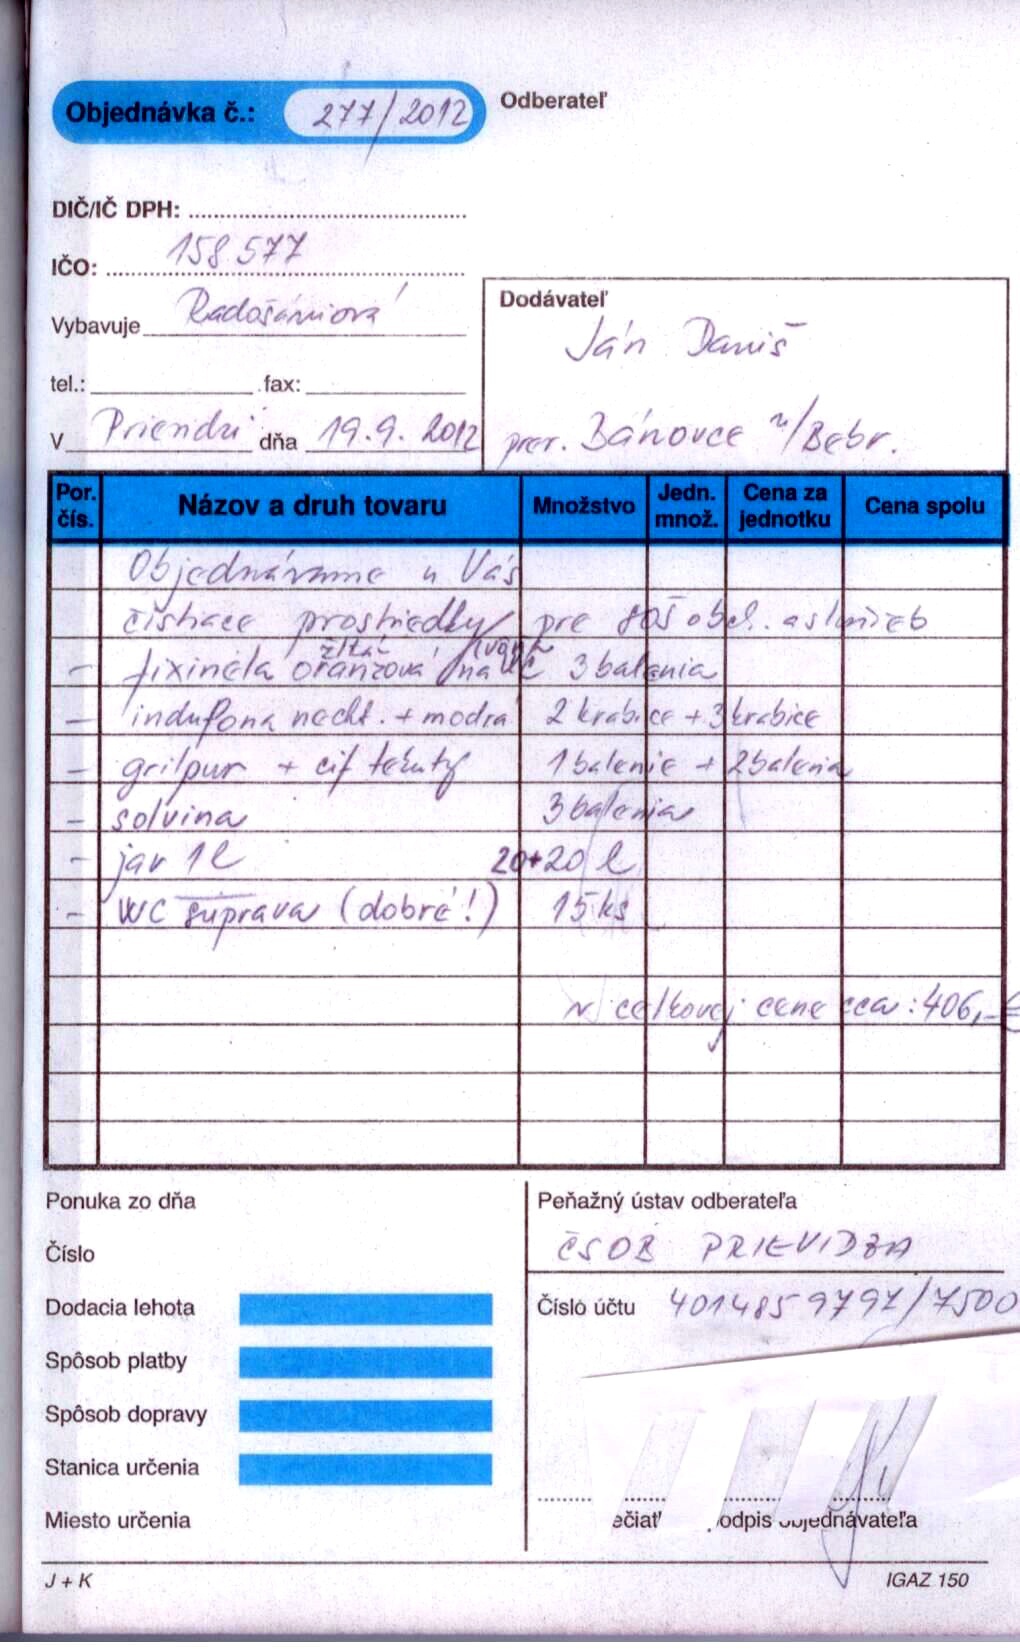 Objednávka č.: 277/2012
Odberateľ
DIČ/IČ DPH:
IČO: 158 577
Vybavuje Radošániová
tel.: fax:
V Prievidzi dňa 19.9. 2012
Dodávateľ
Ján Daniš
prev. Bánovce n/Bebr.
Por. čís. Názov a druh tovaru Množstvo Jedn. množ. Cena za jednotku Cena spolu
Objednávame u Vás
čistiace prostriedky pre SOŠ obch. a služieb
žltá
- fixinela oranžová na WC 3 balenia
- indulona necht. + modrá 2 krabice + 3 krabice
- grilpur + cif tekutý 1 balenie + 2 balenia
- solvina 3 balenia
- jar 1 l 20+20 l
- WC súprava (dobré!) 15 ks
v celkovej cene cca: 406,-€
Ponuka zo dňa
Číslo
Dodacia lehota
Spôsob platby
Spôsob dopravy
Stanica určenia
Miesto určenia
Peňažný ústav odberateľa
ČSOB PRIEVIDZA
Číslo účtu 4014859797/7500
ečiat odpis objednávateľa
J + K IGAZ 150